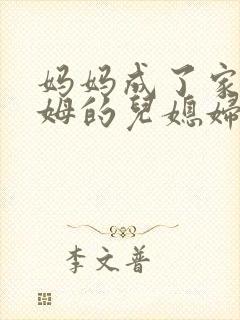 妈妈成了家
姆的兒媳婦
李文普